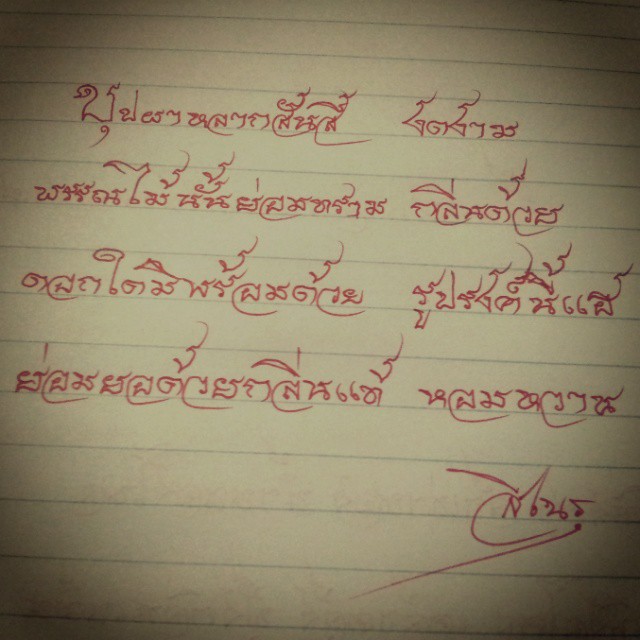 บุปผาหลากสันสี งดงาม
พรรณไม้นั้นย่อมทราม กลิ่นด้วย
ดอกใดมิพร้อมด้วย รูปรงค์นี้แฮ
ย่อมยอด้วยกลิ่นแท้ หอมหวาน
สิเนรุ